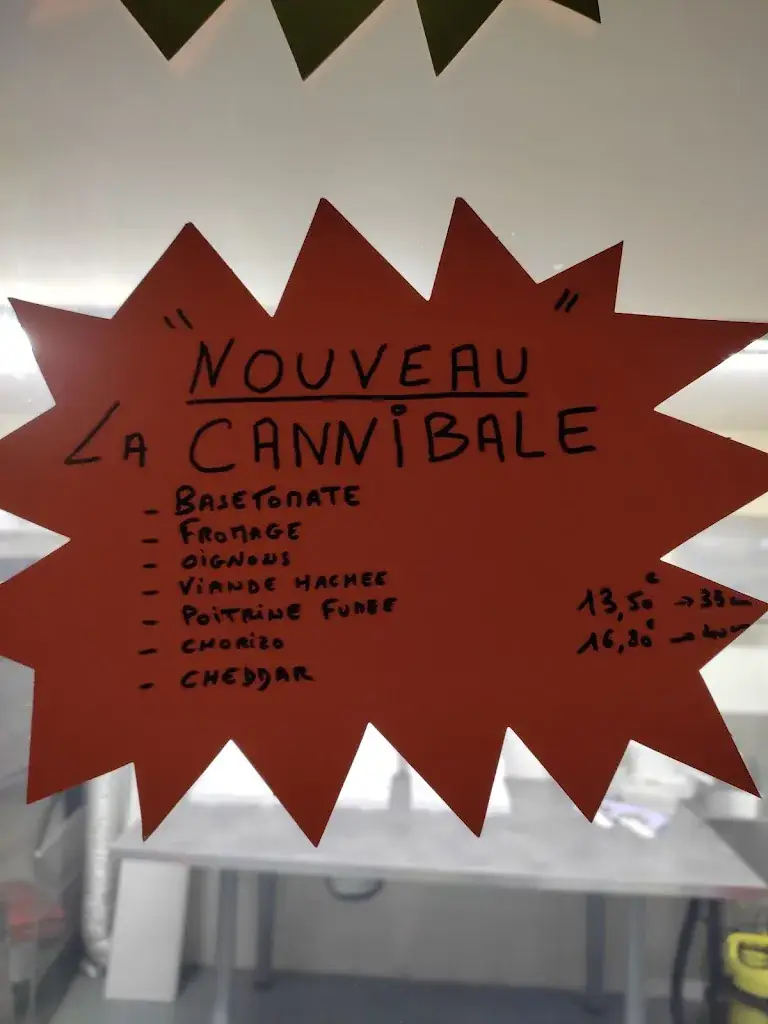 " NOUVEAU "
LA CANNIBALE
- BASE TOMATE
- FROMAGE
- OIGNONS
- VIANDE HACHEE
- POITRINE FUMEE
- CHORIZO
- CHEDDAR
13,50€ → 33cm
16,80€ → 40cm